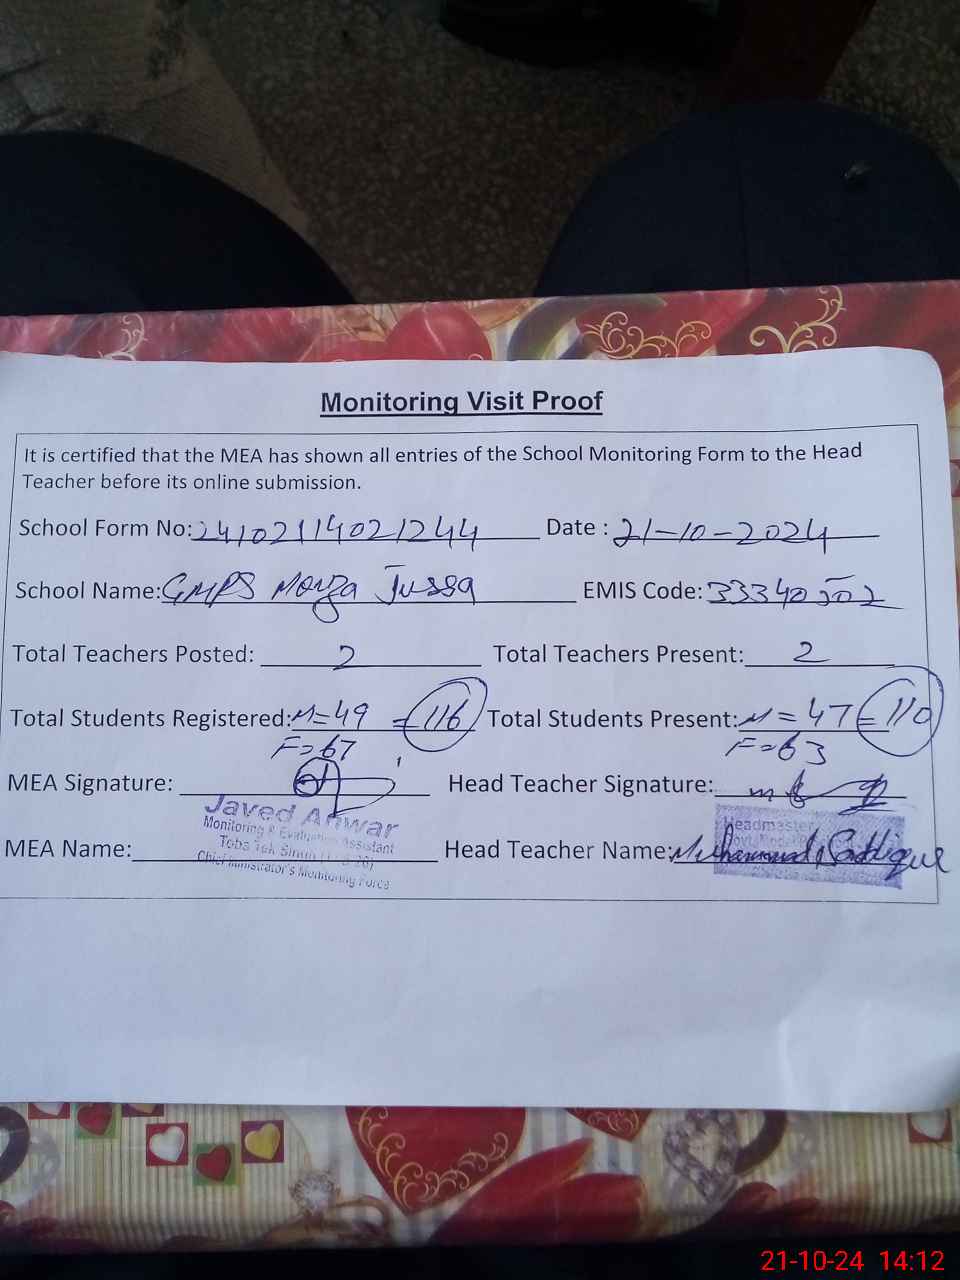 Monitoring Visit Proof
It is certified that the MEA has shown all entries of the School Monitoring Form to the Head
Teacher before its online submission.
School Form No: 24102114021244 Date : 21-10-2024
School Name: GMPS Monza Jussa EMIS Code: 33340502
Total Teachers Posted: 2 Total Teachers Present: 2
Total Students Registered: M=49 =116 Total Students Present: M=47=110
F=67 F=63
MEA Signature: Head Teacher Signature:
Javed Anwar
Monitoring & Evaluation Assistant
Toba Tek Singh
Chief Minister's Monitoring Force
Headmaster
MEA Name: Head Teacher Name: Muhammad Saddique
21-10-24 14:12